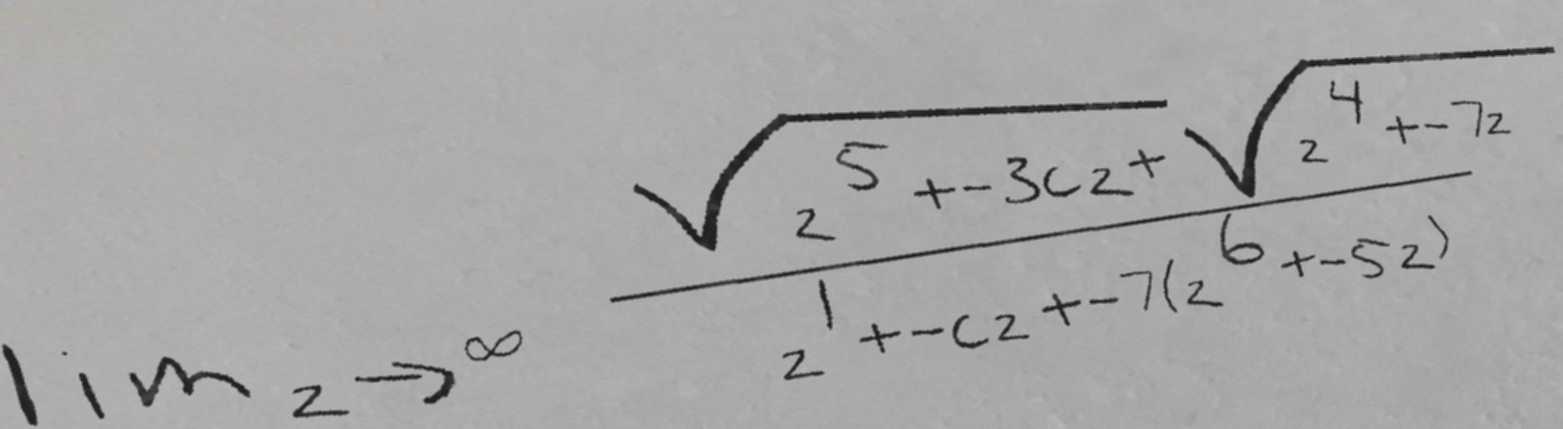 \lim_{z \to \infty} \frac{\sqrt{z^5 + -3cz} + \sqrt{z^4 + -7z}}{z^1 + -cz + -7(z^6 + -5z)}